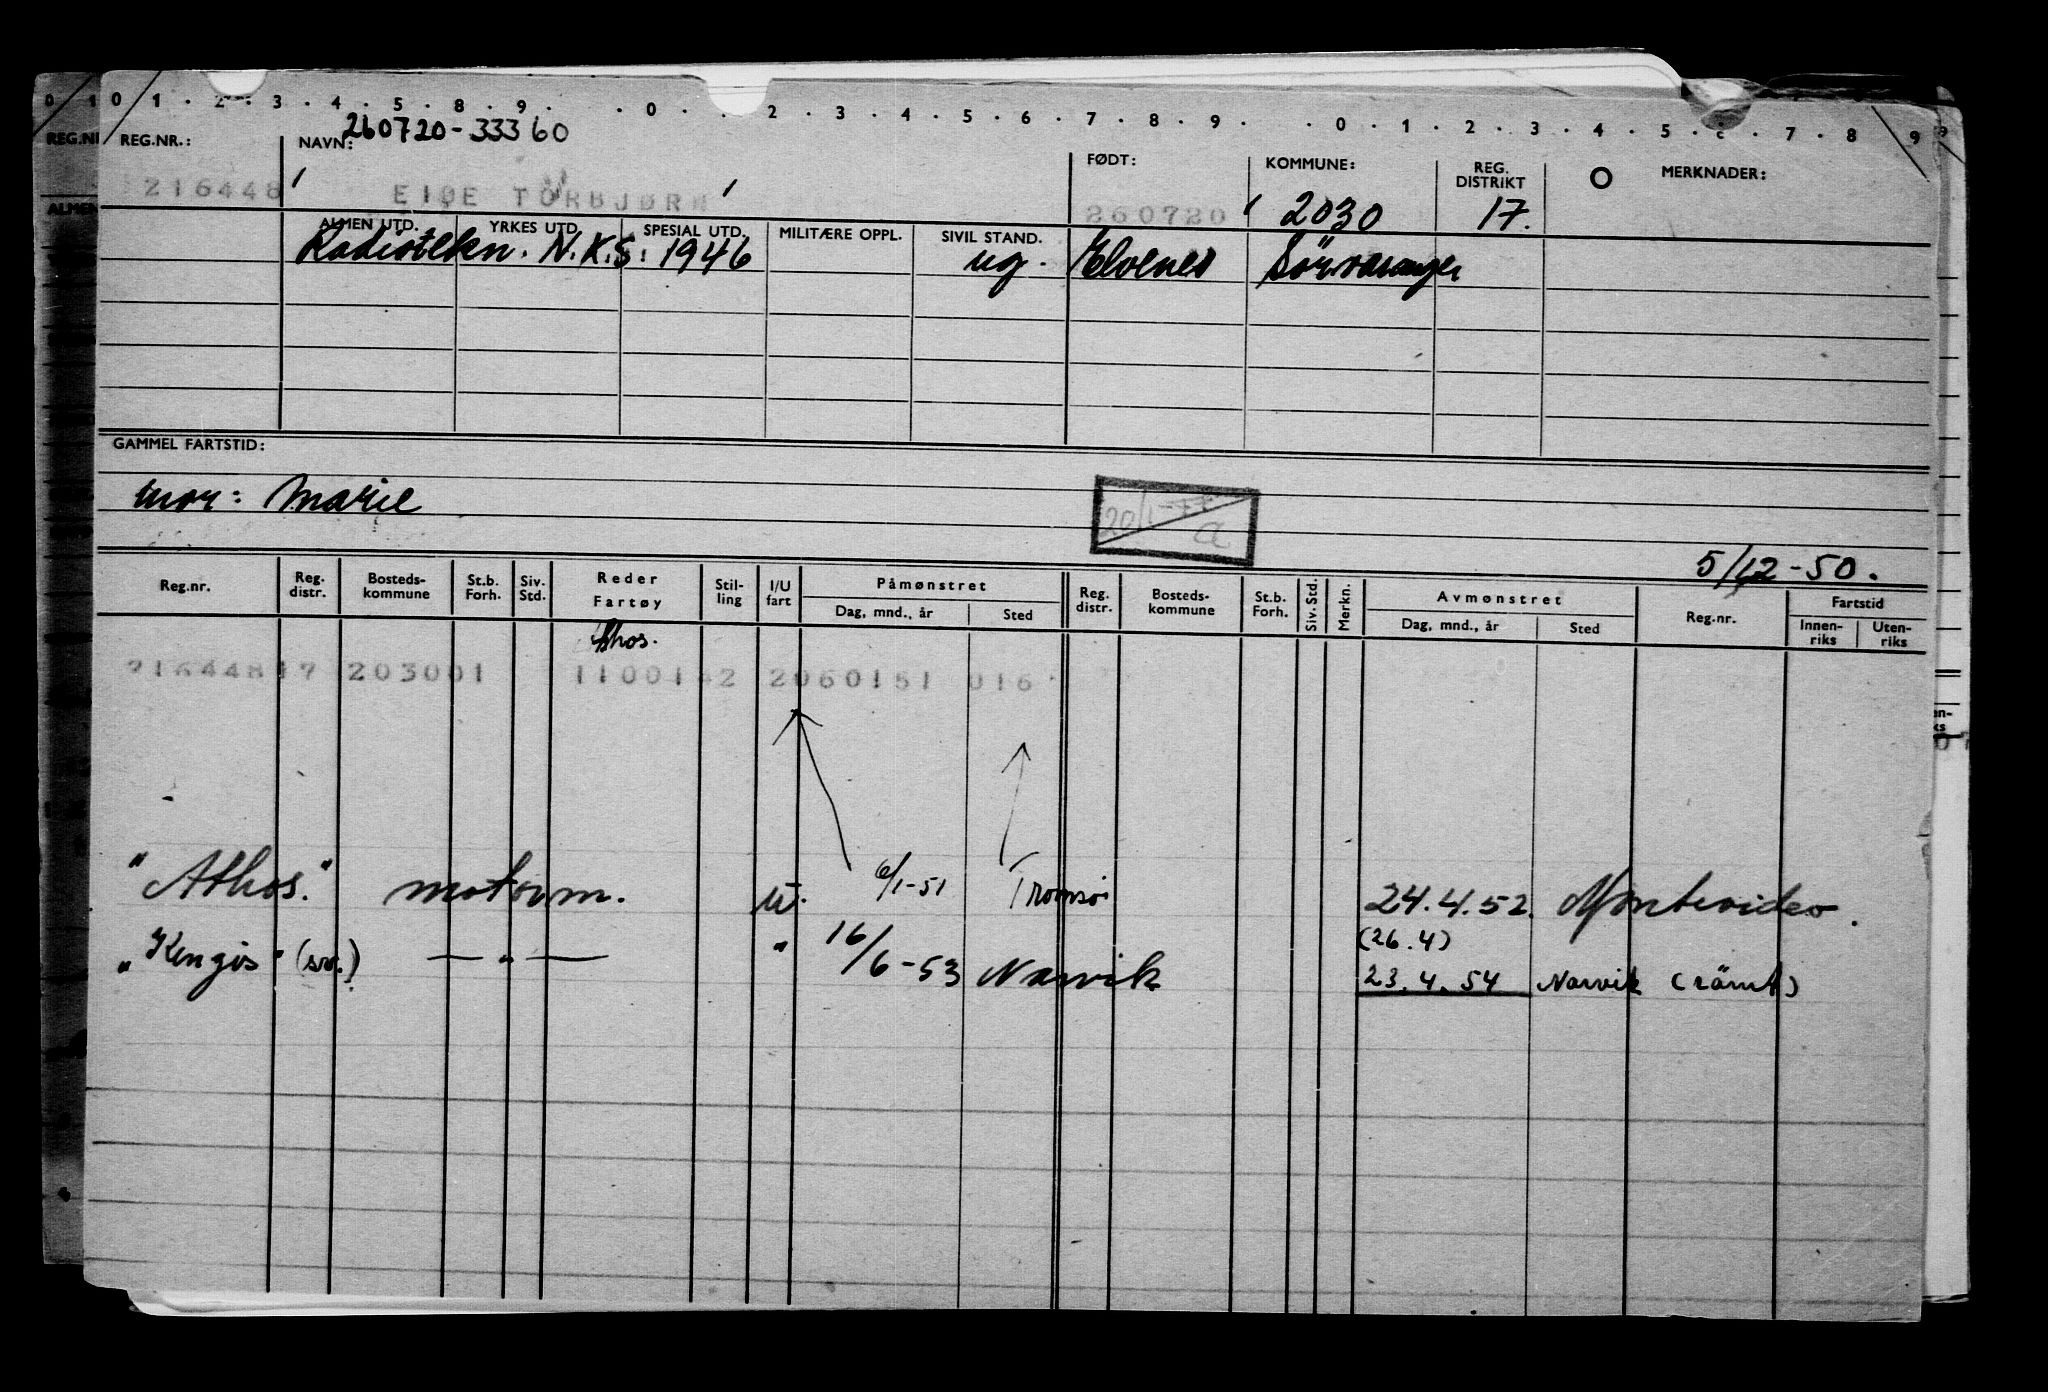 0 1 0 1 2 3 4 5 8 9 0 2 3 4 5 6 7 8 9 0 1 2 3 4 5 6 7 8 9 9
260720-33360
REG.NR REG.NR.: NAVN: FØDT: KOMMUNE: REG. DISTRIKT MERKNADER:
216448 EIDE TORBJØRN 260720 2030 17.
ALMEN ALMEN UTD. YRKES UTD. SPESIAL UTD. MILITÆRE OPPL. SIVIL STAND.
Radiotekn. N.K.S. 1946 ug. Elvenes Sørvaranger
GAMMEL FARTSTID:
mor: Marie
20/1-77 a
5/12-50.
Reg.nr. Reg. distr. Bosteds- kommune St.b. Forh. Siv. Std. Reder Fartøy Stil- ling I/U fart Påmønstret Dag, mnd., år Sted Reg. distr. Bosteds- kommune St.b. Forh. Siv. Std. Merkn. Avmønstret Dag, mnd., år Sted Reg.nr. Fartstid Innen- riks Uten- riks
Athos.
21644817 203001 1100142 2060151 016
"Athos." motorm. u. 6/1-51 Tromsö 24.4.52. Montevideo.
(26.4)
"Kengis" (sv.) — " — " 16/6-53 Narvik 23.4.54 Narvik (römt)